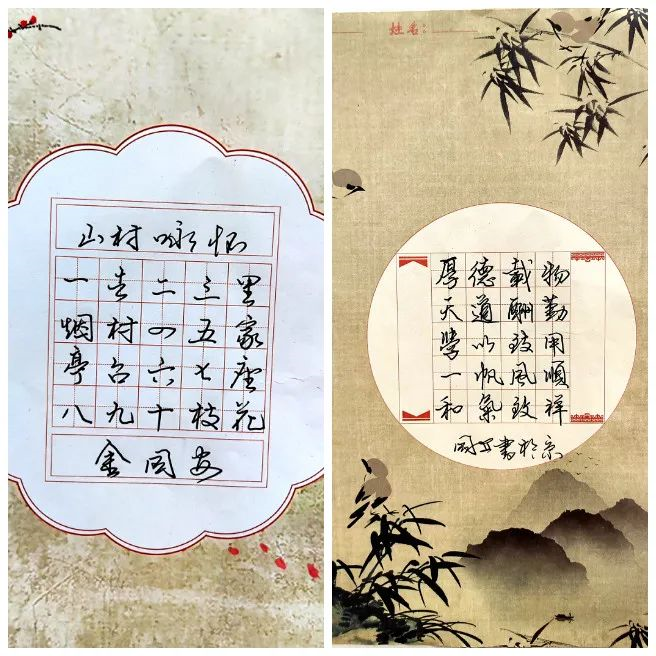 山村咏怀
一去二三里
烟村四五家
亭台六七座
八九十枝花
金国安
姓名:
厚德載物
天道酬勤
學以致用
一帆風順
和氣致祥
国安書於京